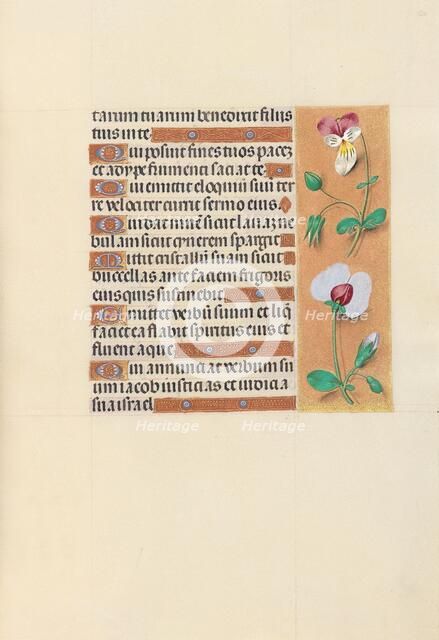 tarum tuarum benedixit filiis
tuis in te
Qui posuit fines tuos pacez
et adipe frumenti saciat te
Qui emittit eloquium suū ter
re velociter currit sermo eius.
Qui dat niuē sicut lanaz ne
bulam sicut cynerem spargit
Mittit cristallū suum sicut
buccellas ante faciem frigoris
eius quis sustinebit
Emittet verbū suum et liq̄
faciet ea flabit spiritus eius et
fluent aque
Qui annunciat verbum su
um iacob iusticias et iudicia
sua israel
Heritage
Heritage
Heritage
Heritage
Heritage
Heritage